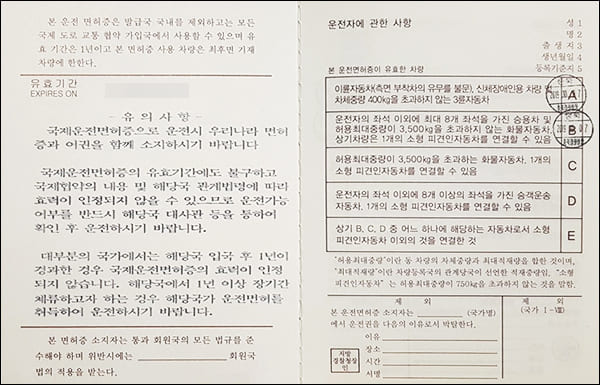 본 운전 면허증은 발급국 국내를 제외하고는 모든
국제 도로 교통 협약 가입국에서 사용할 수 있으며 유
효 기간은 1년이고 본 면허증 사용 차량은 최후면 기재
차량에 한한다.
유효기간
EXPIRES ON
- 유 의 사 항 -
국제운전면허증으로 운전시 우리나라 면허
증과 여권을 함께 소지하시기 바랍니다
국제운전면허증의 유효기간에도 불구하고
국제협약의 내용 및 해당국 관계법령에 따라
효력이 인정되지 않을 수 있으므로 운전가능
여부를 반드시 해당국 대사관 등을 통하여
확인 후 운전하시기 바랍니다.
대부분의 국가에서는 해당국 입국 후 1년이
경과한 경우 국제운전면허증의 효력이 인정
되지 않습니다. 해당국에서 1년 이상 장기간
체류하고자 하는 경우 해당국가 운전면허를
취득하여 운전하시기 바랍니다.
본 면허증 소지자는 통과 회원국의 모든 법규를 준
수해야 하며 위반시에는 회원국
법의 적용을 받는다.
운전자에 관한 사항
성 1
명 2
출 생 지 3
생년월일 4
등록기준지 5
본 운전면허증이 유효한 차량
이륜자동차(측면 부착차의 유무를 불문), 신체장애인용 차량 및
차체중량 400kg을 초과하지 않는 3륜자동차
A
운전자의 좌석 이외에 최대 8개 좌석을 가진 승용차 및
허용최대중량이 3,500kg을 초과하지 않는 화물자동차,
상기차량은 1개의 소형 피견인자동차를 연결할 수 있음
B
허용최대중량이 3,500kg을 초과하는 화물자동차, 1개의
소형 피견인자동차를 연결할 수 있음
C
운전자의 좌석 이외에 8개 이상의 좌석을 가진 승객운송
자동차. 1개의 소형 피견인자동차를 연결할 수 있음
D
상기 B, C, D 중 어느 하나에 해당하는 자동차로서 소형
피견인자동차 이외의 것을 연결한 것
E
"허용최대중량"이란 동 차량의 차체중량과 최대적재량을 합한 것이며,
"최대적재량"이란 차량등록국의 관계당국이 선언한 적재중량임, "소형
피견인자동차"는 허용최대중량이 750kg을 초과하지 않는 것을 말함.
제 외
본 운전면허증 소지자는 (국가명)
에서 운전권을 다음의 이유로서 박탈한다.
이유
장소
시간
서명
지방
경찰청장
인
제 외
(국가 I-VIII)